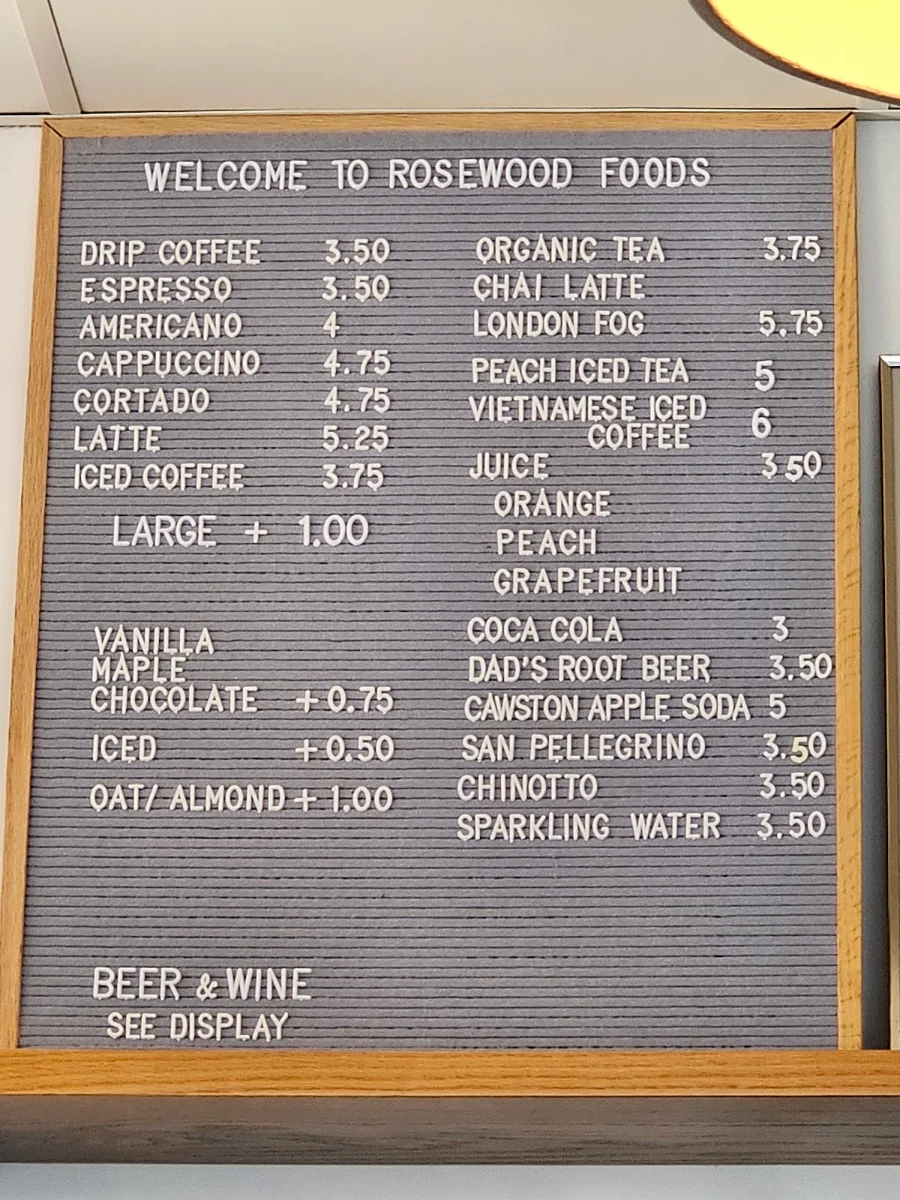 WELCOME TO ROSEWOOD FOODS
DRIP COFFEE 3.50
ESPRESSO 3.50
AMERICANO 4
CAPPUCCINO 4.75
CORTADO 4.75
LATTE 5.25
ICED COFFEE 3.75
LARGE + 1.00
VANILLA
MAPLE
CHOCOLATE +0.75
ICED +0.50
OAT/ ALMOND + 1.00
BEER & WINE
SEE DISPLAY
ORGANIC TEA 3.75
CHAI LATTE
LONDON FOG 5.75
PEACH ICED TEA 5
VIETNAMESE ICED
COFFEE 6
JUICE 3.50
ORANGE
PEACH
GRAPEFRUIT
COCA COLA 3
DAD'S ROOT BEER 3.50
CAWSTON APPLE SODA 5
SAN PELLEGRINO 3.50
CHINOTTO 3.50
SPARKLING WATER 3.50